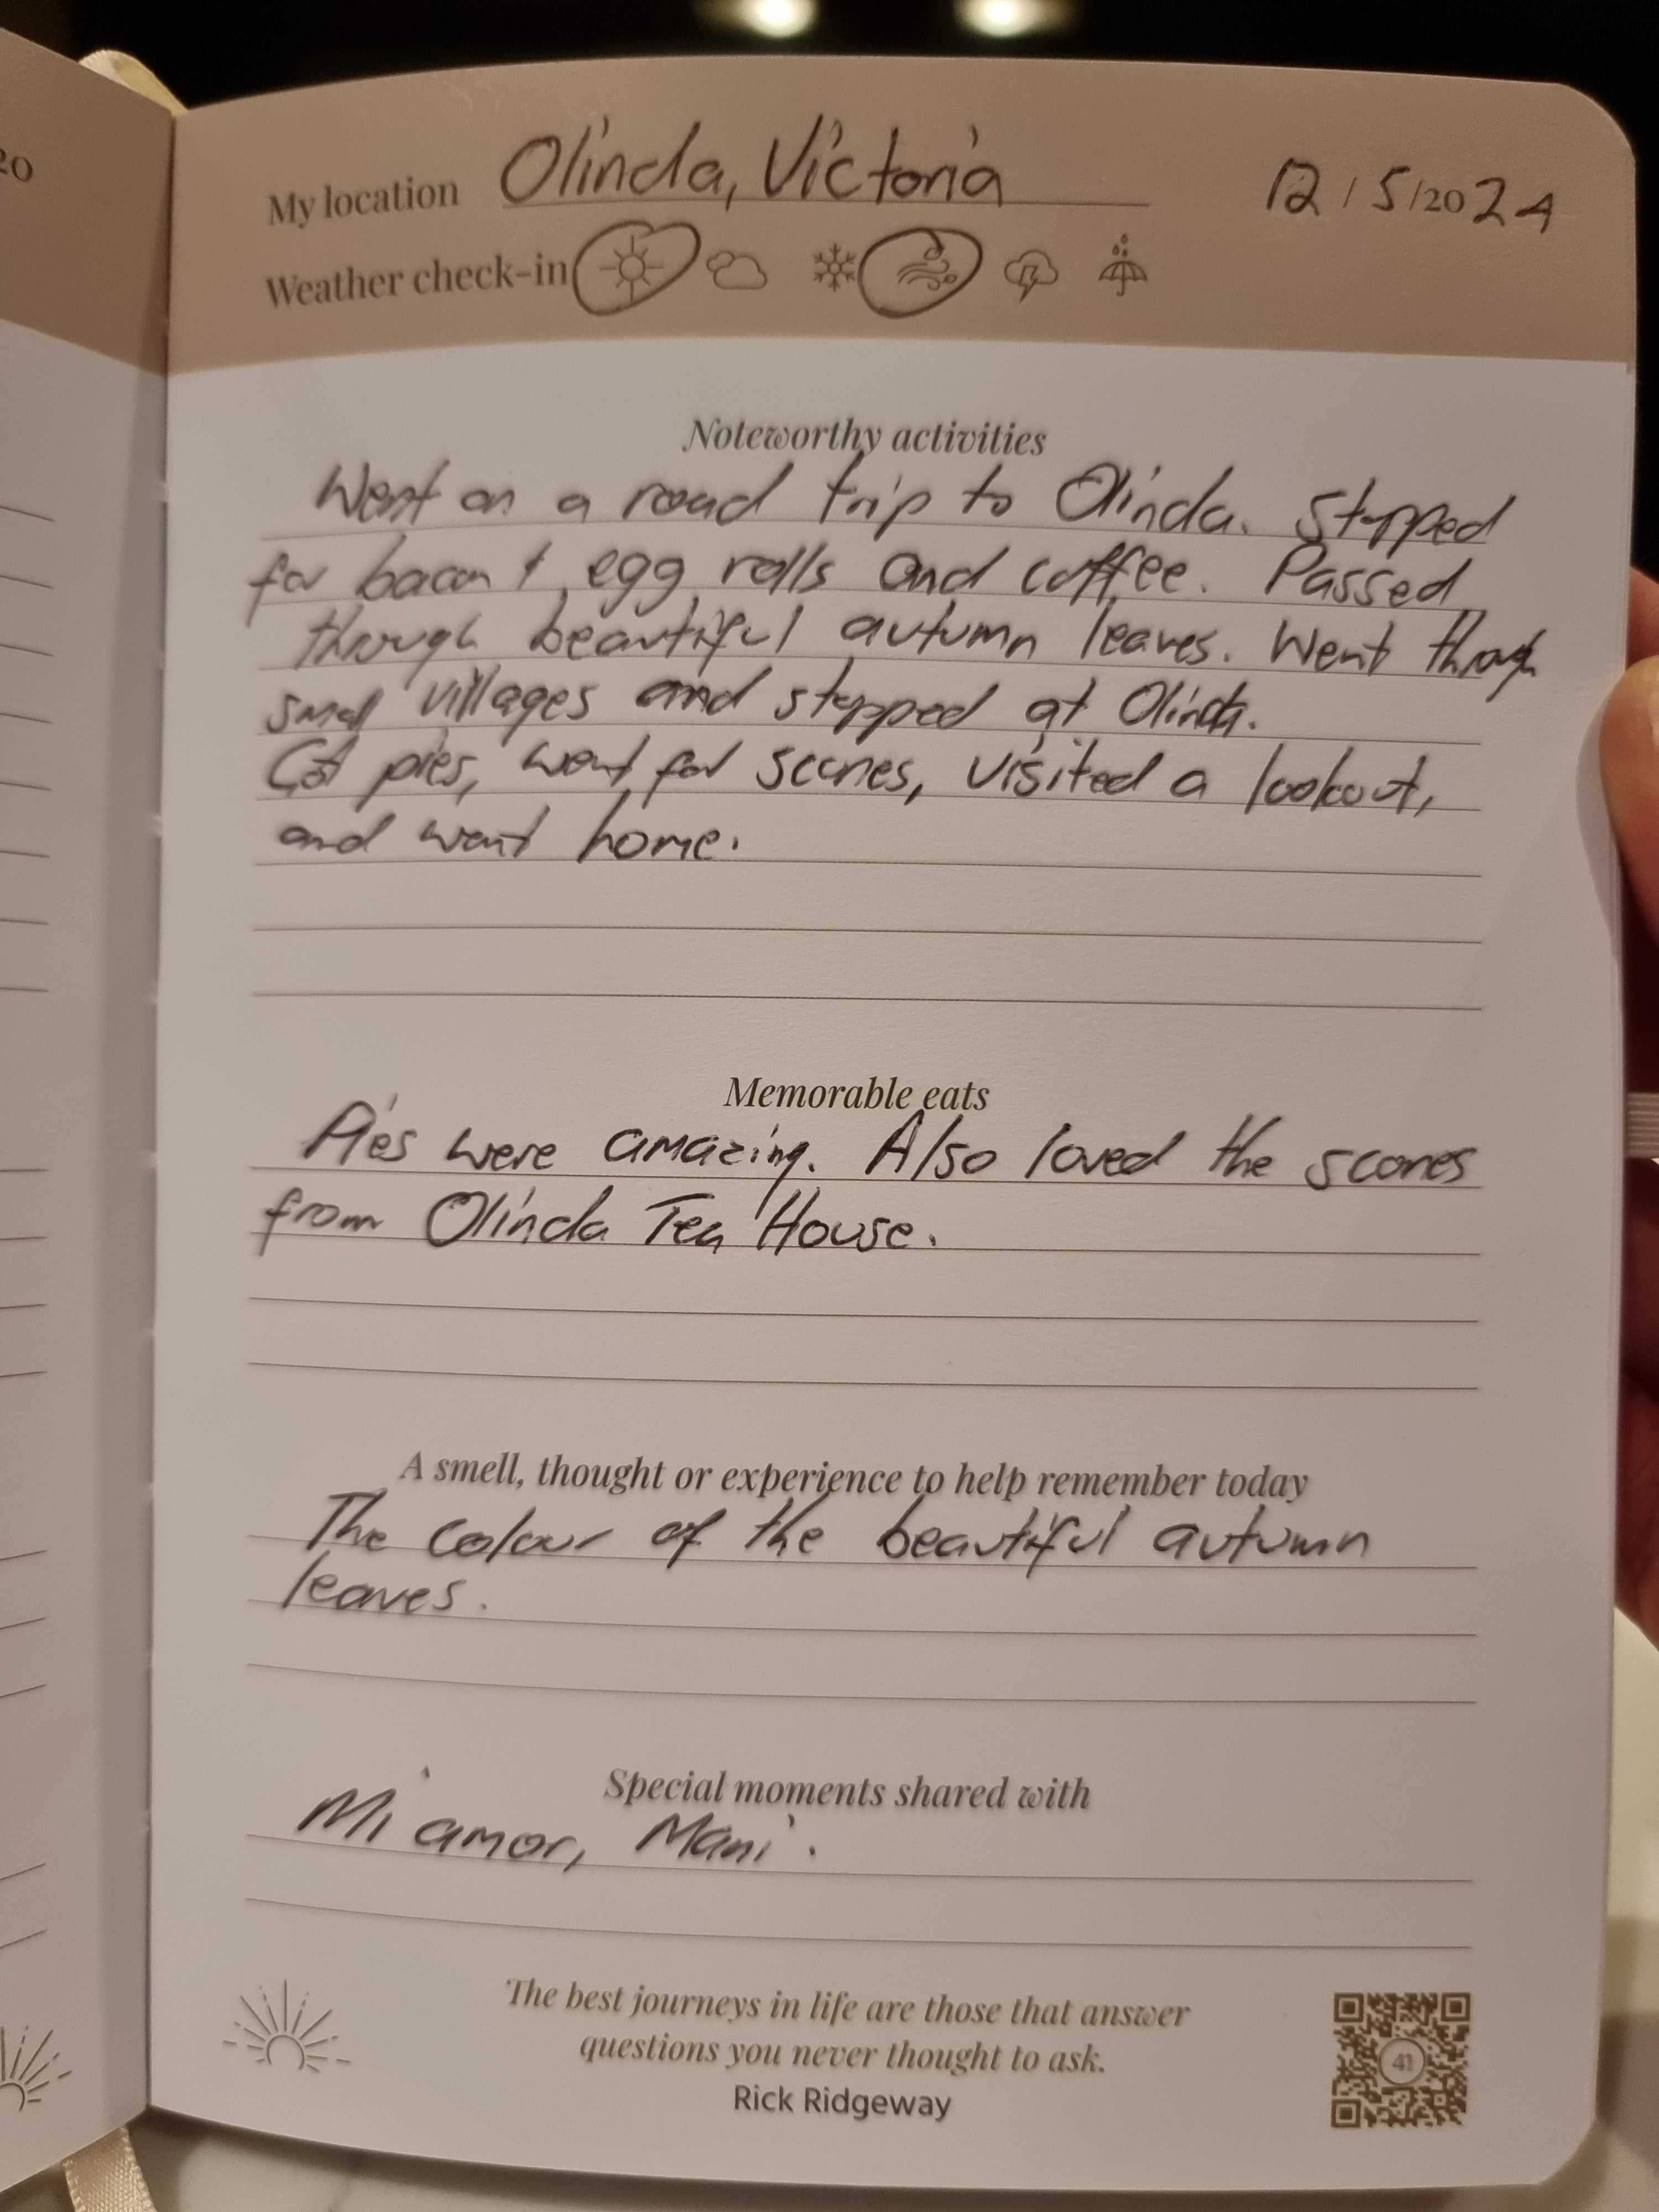 20
My location Olinda, Victoria 12/5/2024
Weather check-in
Noteworthy activities
Went on a road trip to Olinda. Stopped
for bacon & egg rolls and coffee. Passed
through beautiful autumn leaves. Went through
small villages and stopped at Olinda.
Got pies, went for scones, visited a lookout,
and went home.
Memorable eats
Pies were amazing. Also loved the scones
from Olinda Tea House.
A smell, thought or experience to help remember today
The colour of the beautiful autumn
leaves.
Special moments shared with
Mi amor, Mani.
The best journeys in life are those that answer
questions you never thought to ask.
Rick Ridgeway
41